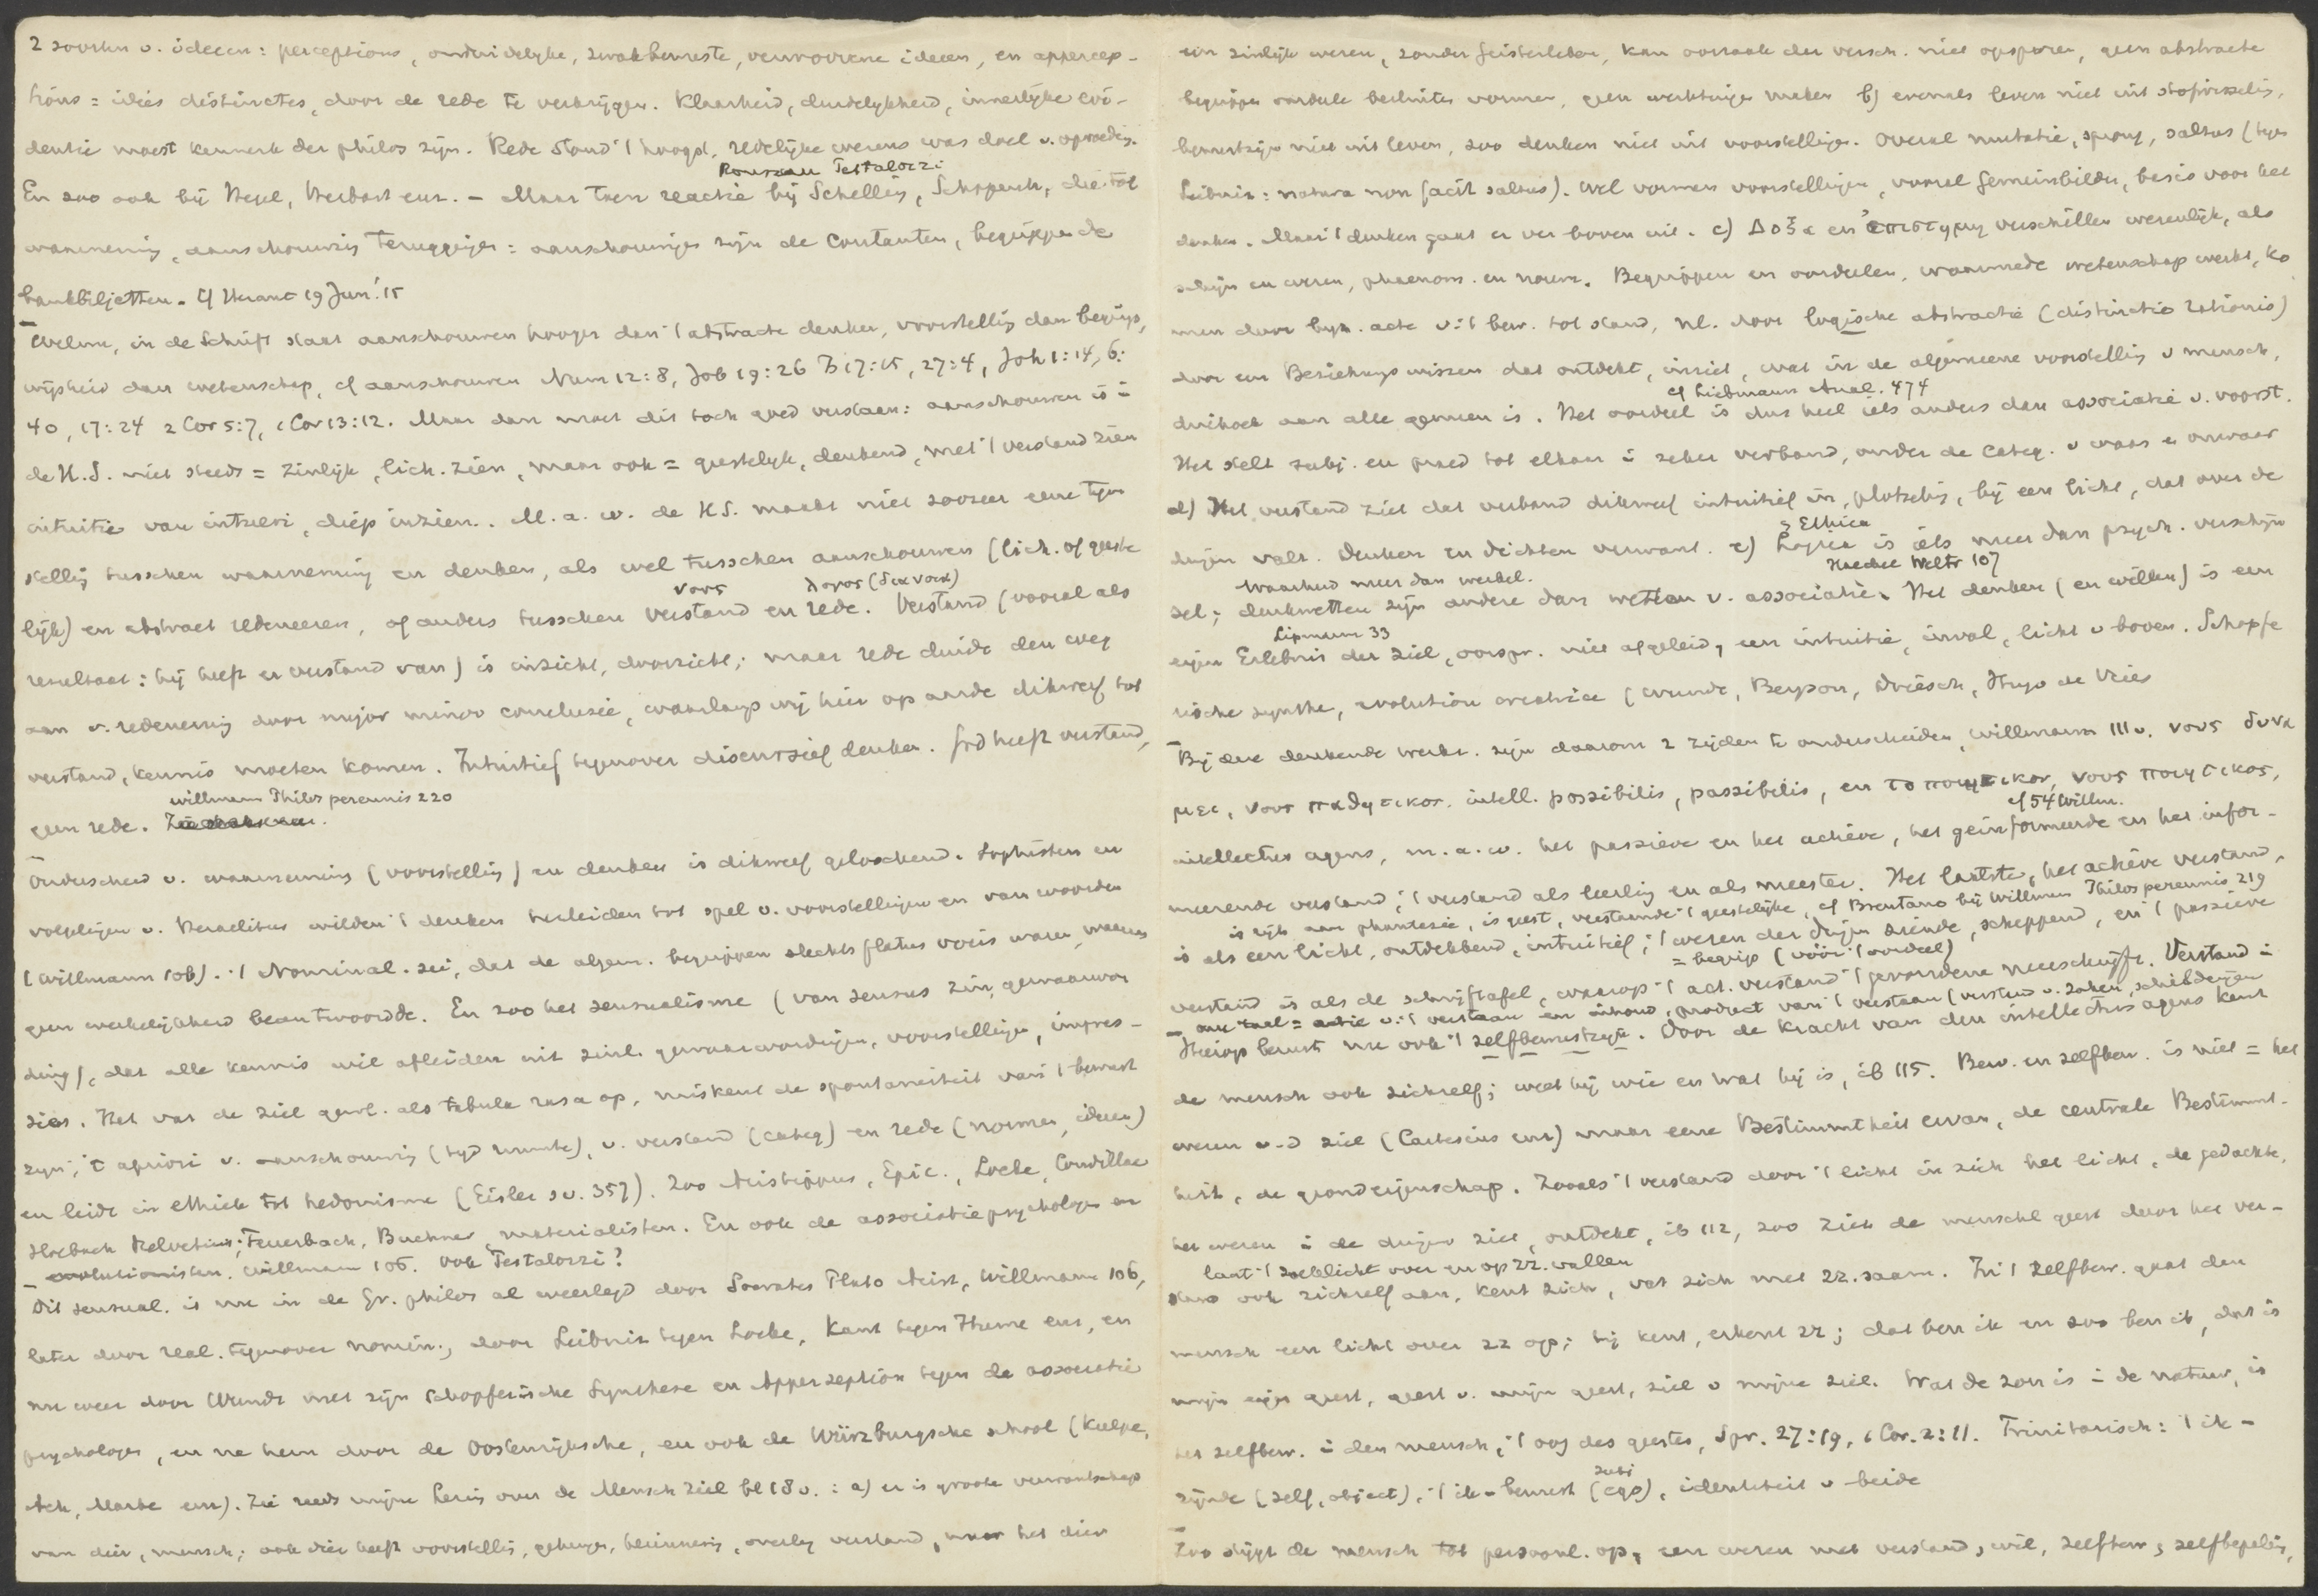 2 soorten v. ideeen: perceptions, onduidelijke, zwakbewuste, verworrene ideeen, en appercep-
tions = idées distinctes, door de rede te verkrijgen. Klaarheid, duidelykheid, innerlijke evi-
dentie moest kenmerk der philos zijn. Rede stond 't hoogst, redelijke wezens was doel v. opvoeding.
Rousseau Pestalozzi
En zoo ook bij Hegel, Herbart enz. - Maar toen reactie bij Schelling, Schopenh, die tot
waarneming, aanschouwing teruggingen: aanschouwingen zijn de contanten, begrippen de
bankbiljetten. Cf Heraut 19 Jun! 15
Welnu, in de Schrift staat aanschouwen hooger dan 't abstracte denken, voorstelling dan begrip,
wijsheid dan wetenschap, cf aanschouwen Num 12:8, Job 19:26 Ps 17:15, 27:4, Joh 1:14, 6:
40, 17:24 2 Cor 5:7, 1 Cor 13:12. Maar dan moet dit toch goed verstaan: aanschouwen is i
de H.S. niet steeds = zinlijk, lich. zien, maar ook = geestelijk, denkend, met 't verstand zien
intuitie van intueri, diep inzien. M. a. w. de H.S. maakt niet zoozeer eene tegen
stelling tusschen waarneming en denken, als wel tusschen aanschouwen (lich. of geeste
νους λογος (διανοια)
lijk) en abstract redeneeren, of anders tusschen verstand en rede. Verstand (vooral als
resultaat: hij heeft er verstand van) is inzicht, doorzicht; maar rede duidt den weg
aan v. redenering door major minor conclusie, waarlangs wij hier op aarde dikwerf tot
verstand, kennis moeten komen. Intuitief tegenover discursief denken. God heeft verstand,
Willmann Philos perennis 220
geen rede.
Onderscheid v. waarneming (voorstelling) en denken is dikwerf geloochend. Sophisten en
volgelingen v. Heraclitus wilden 't denken herleiden tot spel v. voorstellingen en van woorden
(Willmann 106). 't Nominal. zei, dat de algem. begrippen slechts flatus vocis waren, waaraan
geen werkelijkheid beantwoordde. En zoo het sensualisme (van sensus zin, gewaarwor
ding), dat alle kennis wil afleiden uit zinl. gewaarwordingen, voorstellingen, impres-
sies. Het vat de ziel gewl. als tabula rasa op, miskent de spontaneiteit van 't bewust
zijn, 't apriori v. aanschouwing (tijd ruimte), v. verstand (categ) en rede (normen, ideeen)
en leidt in ethiek tot hedonisme (Eisler s.v. 357). Zoo Aristippus, Epic., Locke, Condillac
Holbach Helvetius, Feuerbach, Buchner, materialisten. En ook de associatiepsychologen en
evolutionisten. Willmann 106. Ook Pestalozzi?
Dit sensual. is nu in de Gr. philos al weerlegd door Socrates Plato Arist, Willmann 106,
later door real. tegenover nomin., door Leibniz tegen Locke, Kant tegen Hume enz, en
nu weer door Wundt met zijn schopferische Synthese en Apperzeption tegen de associatie
psychologen, en na hem door de Oostenrijksche, en ook de Würzburgsche school (Kuelpe,
Ach, Marbe enz). Zie reeds mijne lezing over de Mensch Ziel bl 18 v.: a) er is groote verwantschap
van dier, mensch; ook dier heeft voorstelling, geheugen, herinnering, overleg verstand, maar het dier
een zinlijk wezen, zonder Geistesleben, kan oorzaak der versch. niet opsporen, geen abstracte
begrippen oordeelen besluiten vormen, geen werktuigen maken b) evenals leven niet uit stofwisseling,
bewustzijn niet uit leven, zoo denken niet uit voorstellingen. Overal mutatie, sprong, saltus (tegen
Leibniz: natura non facit saltus). Wel vormen voorstellingen, vooral Gemeinbilder, basis voor het
denken. Maar 't denken gaat er ver boven uit. c) Δοξα en ἐπιστημη verschillen wezenlijk, als
schijn en wezen, phaenom. en noum. Begrippen en oordeelen, waarmede wetenschap werkt, ko
men door byz. acte v. 't bew. tot stand, nl. door logische abstractie (distinctio rationis)
door een Beziehungswissen dat ontdekt, inziet, wat in de algemeene voorstelling v mensch,
cf Liebmann Anal. 474
driehoek aan alle gemeen is. Het oordeel is dus heel iets anders dan associatie v. voorst.
Het stelt subj. en praed tot elkaar i zeker verband, onder de categ. v waar en onwaar
d) Het verstand ziet dat verband dikwerf intuitief in, plotseling, bij een licht, dat over de
& Ethica
dingen valt. Denken en dichten verwant. e) Logica is iets meer dan psych. verschijn
waarheid meer dan werkel. Haeckel Weltr 107
sel; denkwetten zijn andere dan wetten v. associatie. Het denken (en willen) is een
Lipmann 33
eigen Erlebnis der ziel, oorspr. niet afgeleid, een intuitie, inval, licht v boven. Schopfe
rische synthe, evolution creatrice (Wundt, Bergson, Driesch, Hugo de Vries
Bij deze denkende werkz. zijn daarom 2 zijden te onderscheiden, Willmann 111 v. νους δυνα
μει, νους παθητικος. intell. possibilis, passibilis, en το ποιητικον, νους ποιητικος,
cf 54 Willm.
intellectus agens, m. a. w. het passieve en het actieve, het geinformeerde en het infor-
meerende verstand, 't verstand als leerling en als meester. Het laatste, het actieve verstand,
is rijk aan phantasie, is geest, verstaande 't geestelijke, cf Brentano bij Willmann Philos perennis 219
is als een licht, ontdekkend, intuitief, 't wezen der dingen ziende, scheppend, en 't passieve
= begrip (vóór 't oordeel)
verstand is als de schrijftafel, waarop 't act. verstand 't gevondene neerschrijft. Verstand i
onze taal = actie v. 't verstaan en inhoud, product van 't verstaan (verstand v. zaken, schilderijen
Hierop berust nu ook 't zelfbewustzijn. Door de kracht van den intellectus agens kent
de mensch ook zichzelf; weet hij wie en wat hij is, ib 115. Bew. en zelfbew. is niet = het
wezen v-d ziel (Cartesius enz) maar eene Bestimmtheit ervan, de centrale Bestimmt-
heit, de grondeigenschap. Zooals 't verstand door 't licht in zich het licht, de gedachte,
het wezen i de dingen ziet, ontdekt, ib 112, zoo ziet de menschel geest door het ver-
laat 't zoeklicht over en op zz. vallen
stand ook zichzelf aan, kent zich, vat zich met zz. saam. In 't zelfbew. gaat den
mensch een licht over zz op; hij kent, erkent zz; dat ben ik en zoo ben ik, dat is
mijn eigen geest, geest v. mijn geest, ziel v mijne ziel. Wat de zon is i de natuur, is
het zelfbew. i den mensch, 't oog des geestes, Spr. 27:19, 1 Cor. 2:11. Trinitarisch: 't ik-
subj
zijnde (zelf, object), 't ik-bewust (ego), identiteit v beide
Zoo stijgt de mensch tot persoonl. op, een wezen met verstand, wil, zelfbew, zelfbepaling,